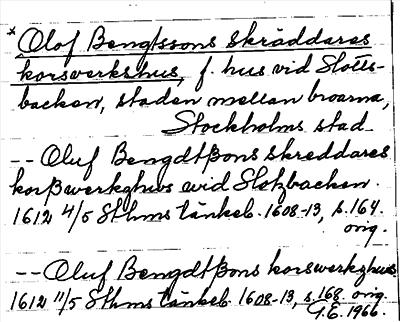 * Olof Bengtssons skräddares
korsverkshus, f. hus vid Slotts-
backen, staden mellan broarna,
Stockholms stad
-- Oluf Bengdtßons skreddares
korßwerkghws wid Slotzbacken.
1612 4/5 Sthms tänkeb. 1608-13, s. 164.
orig.
-- Oluf Bengdtßons korswerkghws
1612 11/5 Sthms tänkeb. 1608-13, s. 168 orig.
G.E. 1966.